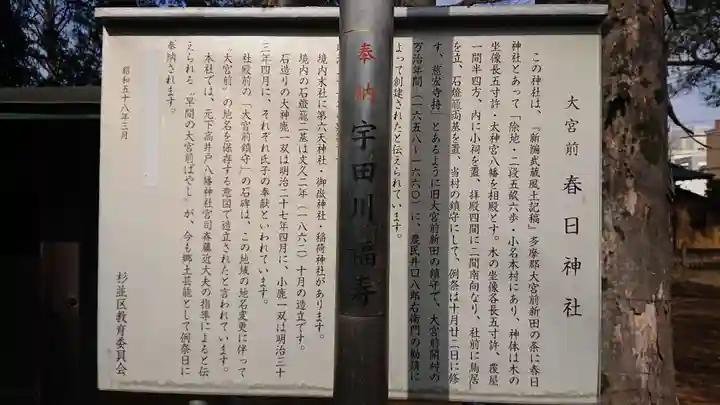 大宮前 春日神社
この神社は、『新編武蔵風土記稿』多摩郡大宮前新田の条に春日
神社とあって「除地・二段五畝六歩・小名本村にあり、神体は木の
坐像長五寸許・太神宮八幡を相殿とす。木の坐像各長五寸許、覆屋
一間半四方、内に小祠を置、拝殿四間に二間南向なり、社前に鳥居
を立、石燈籠両基を置、当村の鎮守にして、例祭は十月廿二日に修
す、慈宏寺持」とあるように旧大宮前新田の鎮守で、大宮前開村の
万治年間(一六五八〜一六六〇)に、農民井口八郎右衛門の勧請に
よって創建されたと伝えられています。
境内末社に第六天神社・御嶽神社・稲荷神社があります。
境内の石燈籠二基は文久二年(一八六二)十月の造立です。
石造りの大神鹿一双は明治二十七年四月に、小鹿一双は明治三十
三年四月に、それぞれ氏子の奉献といわれています。
社殿前の「大宮前鎮守」の石碑は、この地域の地名変更に伴って
"大宮前"の地名を保存する意図で造立されたと言われています。
本社では、元下高井戸八幡神社宮司斉藤近大夫の指導によると伝
えられる"早間の大宮前ばやし"が、今も郷土芸能として例祭日に
奉納されます。
昭和五十八年三月
杉並区教育委員会
奉納 宇田川福寿